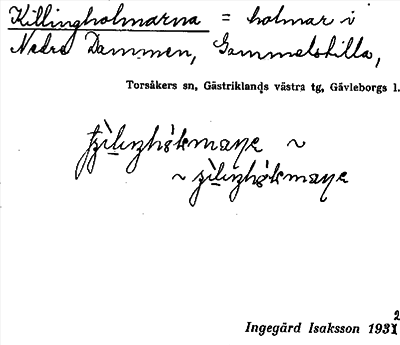 Killingholmarna = holmar i
Nedre Dammen, Gammelstilla,
Torsåkers sn, Gästriklands västra tg, Gävleborgs l.
~
~
2
Ingegärd Isaksson 1931